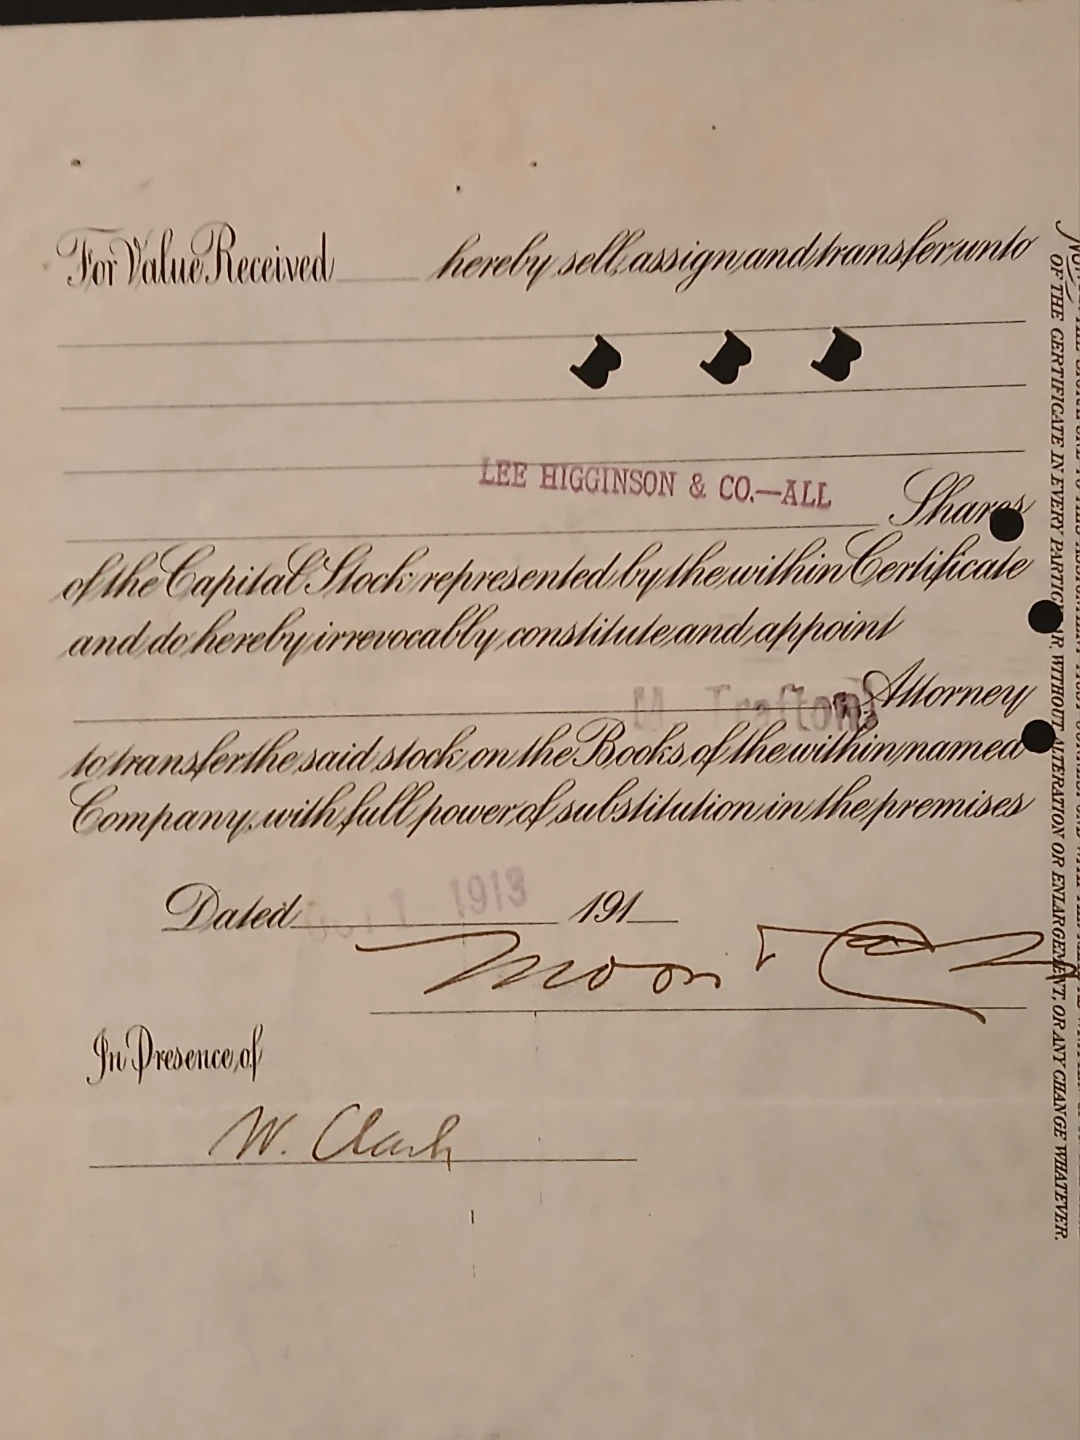 For Value Received hereby sell, assign and transfer unto
LEE HIGGINSON & CO.—ALL
Shares
of the Capital Stock represented by the within Certificate
and do hereby irrevocably constitute and appoint
Trafton, Attorney
to transfer the said stock on the Books of the within named
Company, with full power of substitution in the premises
Dated 1 - 1913 191
Moor &
In Presence of
W. Clark
OF THE CERTIFICATE IN EVERY PARTIC WITHOUT ALTERATION OR ENLARGEMENT, OR ANY CHANGE WHATEVER.